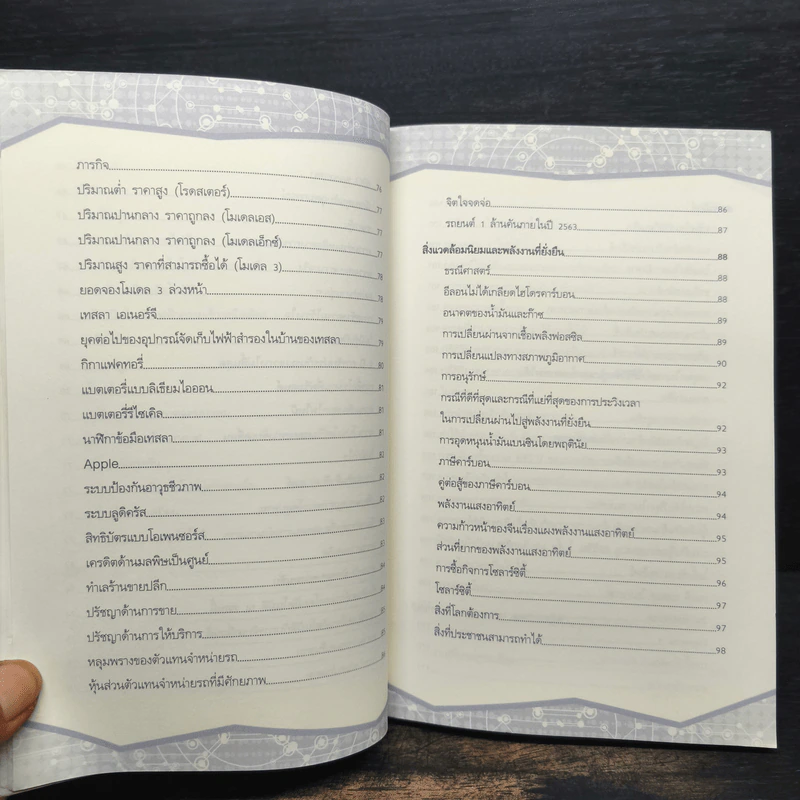 ภารกิจ 76
ปริมาณต่ำ ราคาสูง (โรดสเตอร์) 77
ปริมาณปานกลาง ราคาถูกลง (โมเดลเอส) 77
ปริมาณปานกลาง ราคาถูกลง (โมเดลเอ็กซ์) 77
ปริมาณสูง ราคาที่สามารถซื้อได้ (โมเดล 3) 78
ยอดจองโมเดล 3 ล่วงหน้า 78
เทสลา เอเนอร์จี 79
ยุคต่อไปของอุปกรณ์จัดเก็บไฟฟ้าสำรองในบ้านของเทสลา 79
กิกาแฟคทอรี่ 80
แบตเตอรี่แบบลิเธียมไอออน 81
แบตเตอรี่รีไซเคิล 81
นาฬิกาข้อมือเทสลา 81
Apple 82
ระบบป้องกันอาวุธชีวภาพ 82
ระบบลูดิครัส 82
สิทธิบัตรแบบโอเพนซอร์ส 83
เครดิตด้านมลพิษเป็นศูนย์ 83
ทำเลร้านขายปลีก 84
ปรัชญาด้านการขาย 84
ปรัชญาด้านการให้บริการ 85
หลุมพรางของตัวแทนจำหน่ายรถ 85
หุ้นส่วนตัวแทนจำหน่ายรถที่มีศักยภาพ 86
จิตใจจดจ่อ 86
รถยนต์ 1 ล้านคันภายในปี 2563 87
สิ่งแวดล้อมนิยมและพลังงานที่ยั่งยืน 88
ธรณีศาสตร์ 88
อีลอนไม่ได้เกลียดไฮโดรคาร์บอน 88
อนาคตของน้ำมันและก๊าซ 89
การเปลี่ยนผ่านจากเชื้อเพลิงฟอสซิล 89
การเปลี่ยนแปลงทางสภาพภูมิอากาศ 90
การอนุรักษ์ 92
กรณีที่ดีที่สุดและกรณีที่แย่ที่สุดของการประวิงเวลา
ในการเปลี่ยนผ่านไปสู่พลังงานที่ยั่งยืน 92
การอุดหนุนน้ำมันเบนซินโดยพฤตินัย 93
ภาษีคาร์บอน 93
คู่ต่อสู้ของภาษีคาร์บอน 94
พลังงานแสงอาทิตย์ 94
ความก้าวหน้าของจีนเรื่องแผงพลังงานแสงอาทิตย์ 95
ส่วนที่ยากของพลังงานแสงอาทิตย์ 95
การซื้อกิจการโซลาร์ซิตี้ 96
โซลาร์ซิตี้ 97
สิ่งที่โลกต้องการ 97
สิ่งที่ประชาชนสามารถทำได้ 98